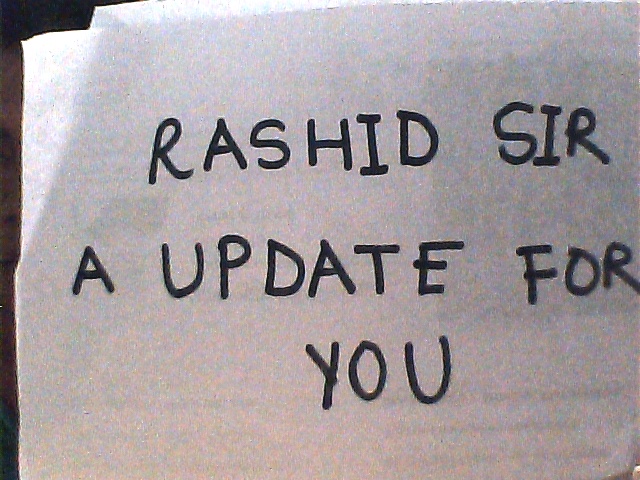 RASHID SIR
A UPDATE FOR
YOU